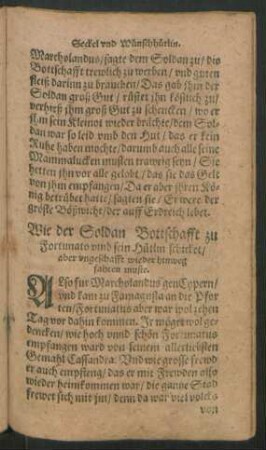 Seckel vnd Wünschhütlin.
Marcholandus/ sagte dem Soldan zu/ die
Bottschafft trewlich zu werben/ vnd guten
fleiß darinn zu brauchen/ Das gab jhm der
Soldan groß Gut/ rüstet jhn köstlich zu/
verhieß jhm groß Gut zu schencken/ wo er
jhm sein Kleinot wieder brächte/ dem Sol-
dan war so leid vmb den Hut/ das er kein
Ruhe haben mochte/ darumb auch alle seine
Mammalucken musten trawrig seyn/ Sie
hetten jhn vor alle gelobt/ das sie das Gelt
von jhm empfangen/ Da er aber jhren Kö-
nig betrübet hatte/ sagten sie/ Er were der
gröste Bößwicht/ der auff Erdreich lebet.
Wie der Soldan Bottschafft zu
Fortunato vmb sein Hütlin schicket/
aber vngeschafft wieder hinweg
fahren muste.
ALso fur Marcholandus gen Cypern/
vnd kam zu Famagusta an die Pfor
ten/ Fortunatus aber war wol zehen
Tag vor dahin kommen. Jr möget wol ge-
dencken/ wie hoch vnnd schön Fortunatus
empfangen ward von seinem allerliebsten
Gemahl Cassandra. Vnd wie grosse frewd
er auch empfieng/ das er mit Frewden also
wieder heimkommen war/ die gantze Stad
frewet sich mit jm/ denn da war viel volcks
von